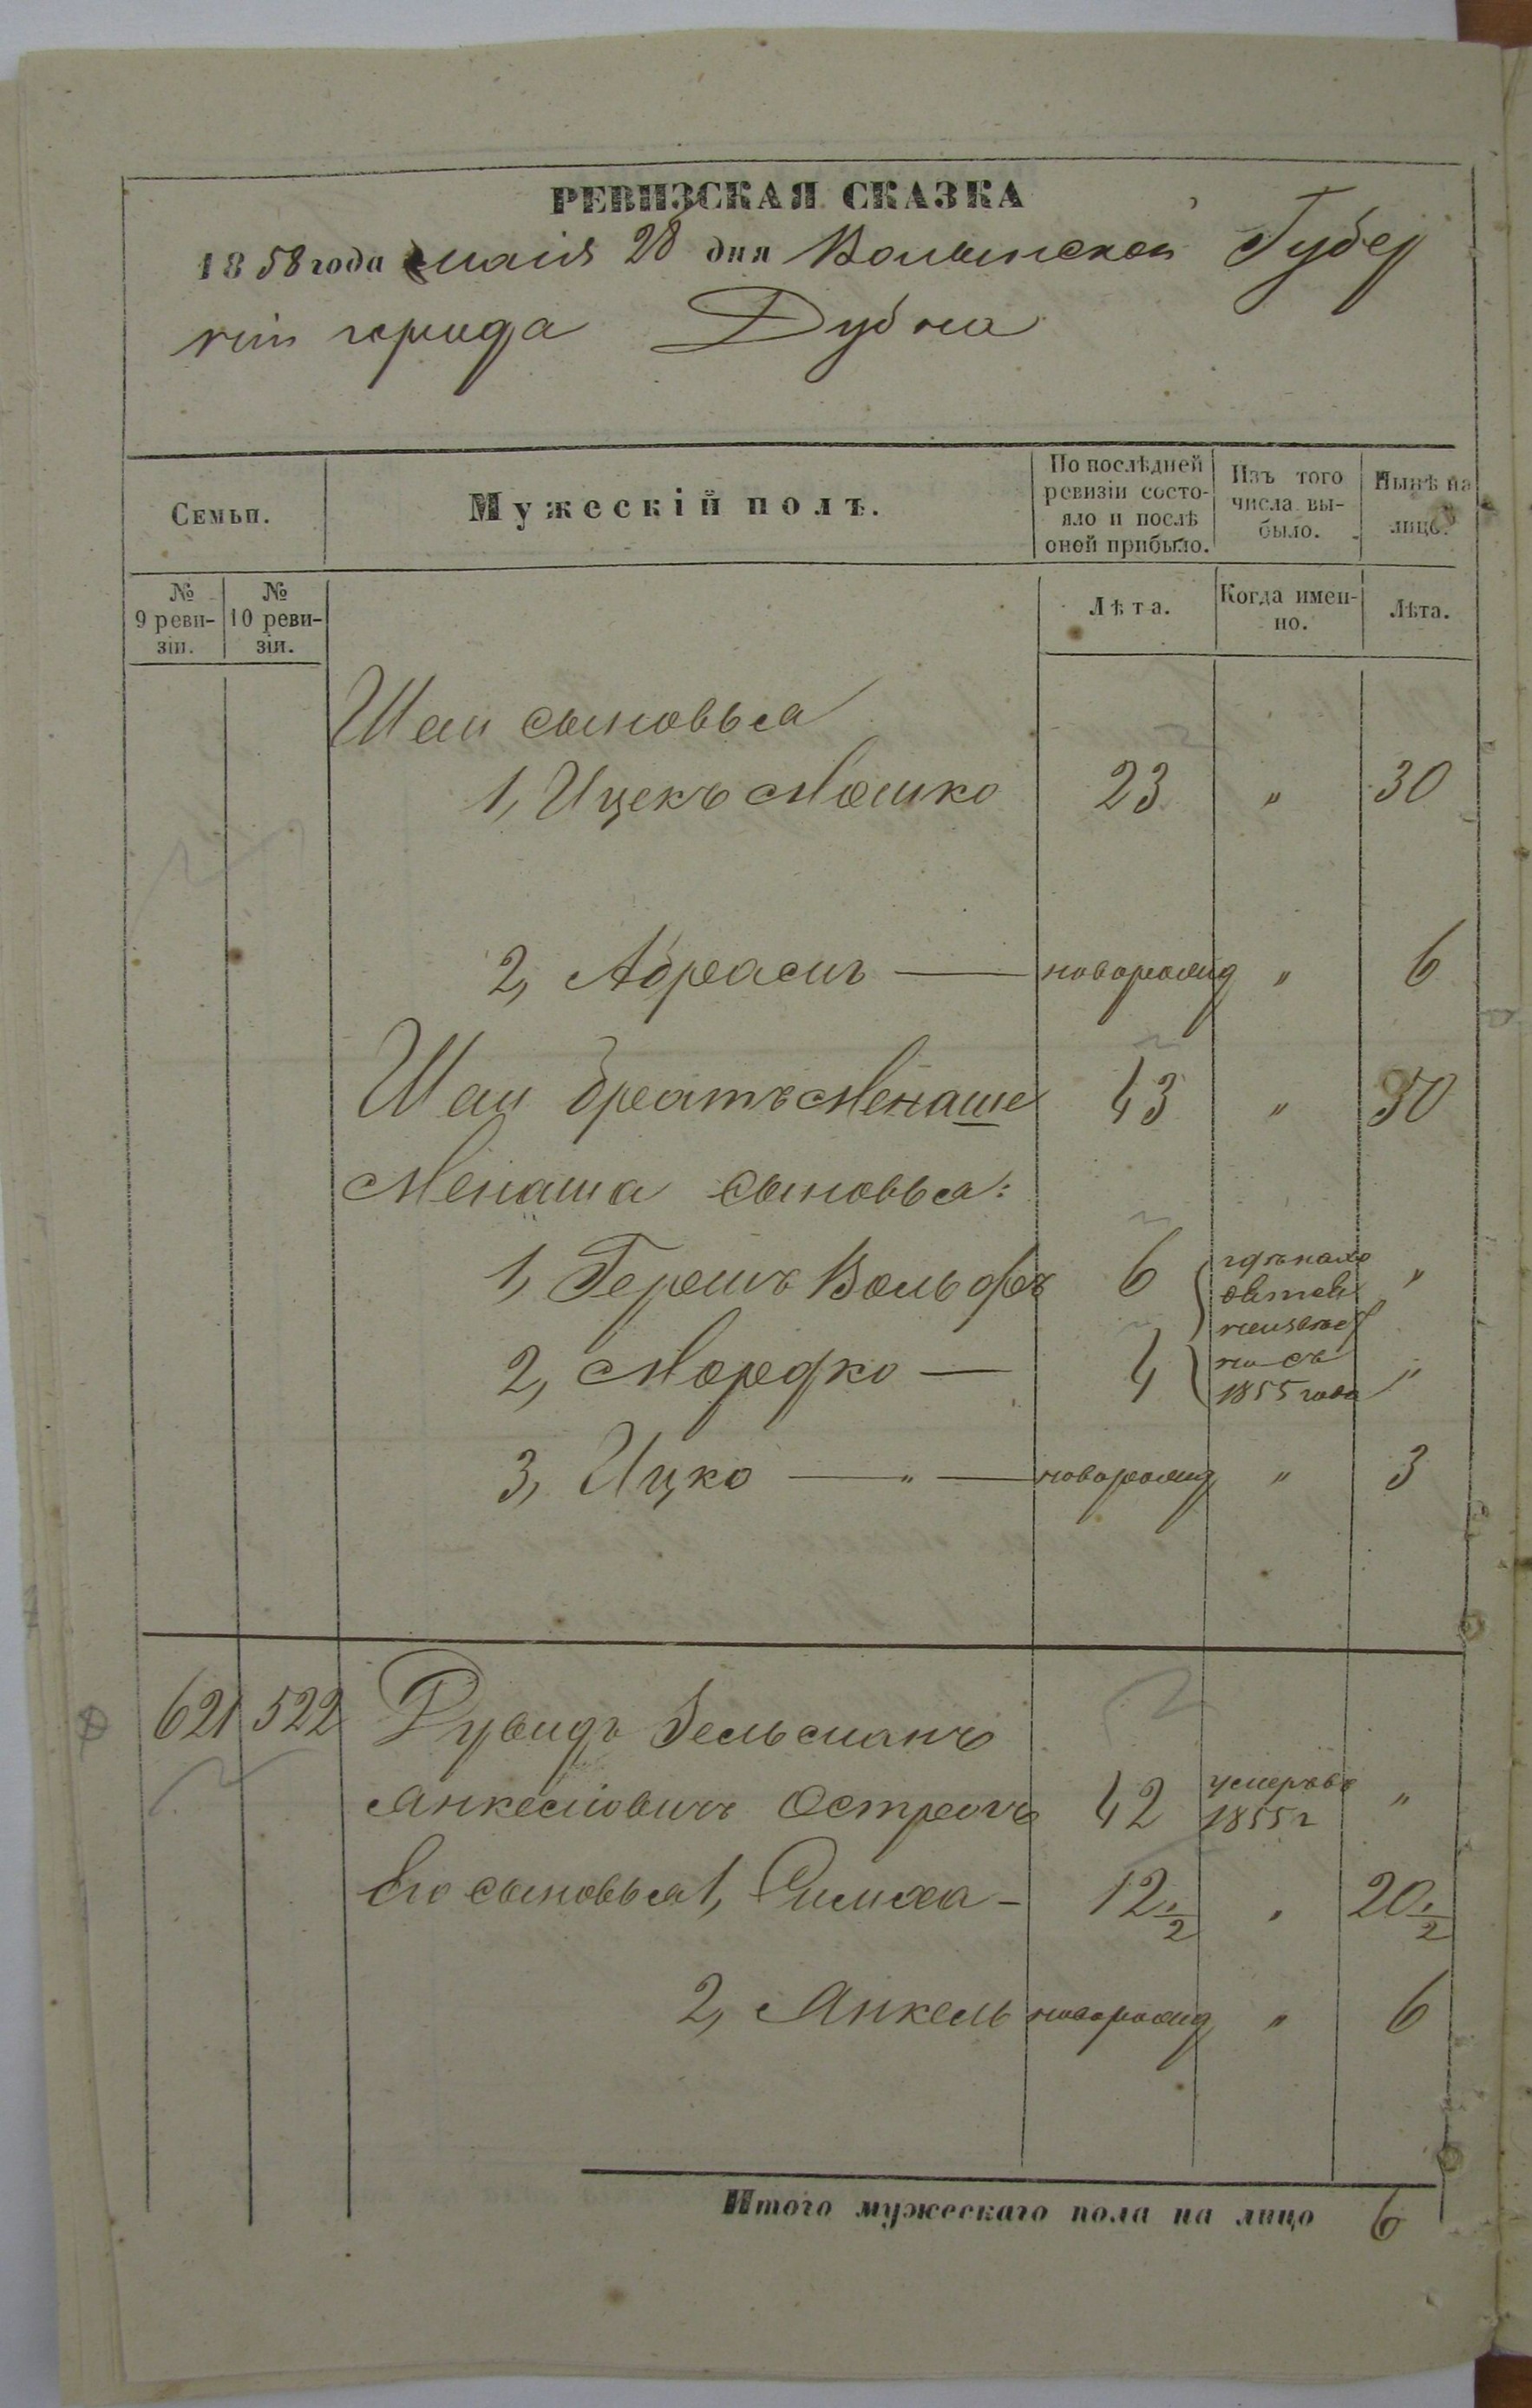 РЕВИЗСКАЯ СКАЗКА
1858 года маія 28 дня Волынской Губер
ніи города Дубна
Семьи.
Мужескій полъ.
По послѣдней ревизіи состо-
яло и послѣ оной прибыло.
Изъ того числа вы-
было.
Нынѣ на лицо.
№ 9 реви-
зіи.
№ 10 реви-
зіи.
Лѣта.
Когда имен-
но.
Лѣта.
Шаи сыновья
1, Ицекъ Мошко 23 " 30
2, Абрамъ — новорожд " 6
Шаи братъ Менаше 43 " 50
Менаша сыновья:
1, Гершъ Вольфъ 6 "
2, Мордко — 4 "
1855 года
3, Ицко — " — новорожд " 3
621 522 Рувидъ Зельманъ
Янкелiовичъ Острогъ 42 умеръ въ 1855 г "
Его сыновья 1, Симха - 12 1/2 " 20 1/2
2, Янкель новорожд " 6
Итого мужескаго пола на лицо 6